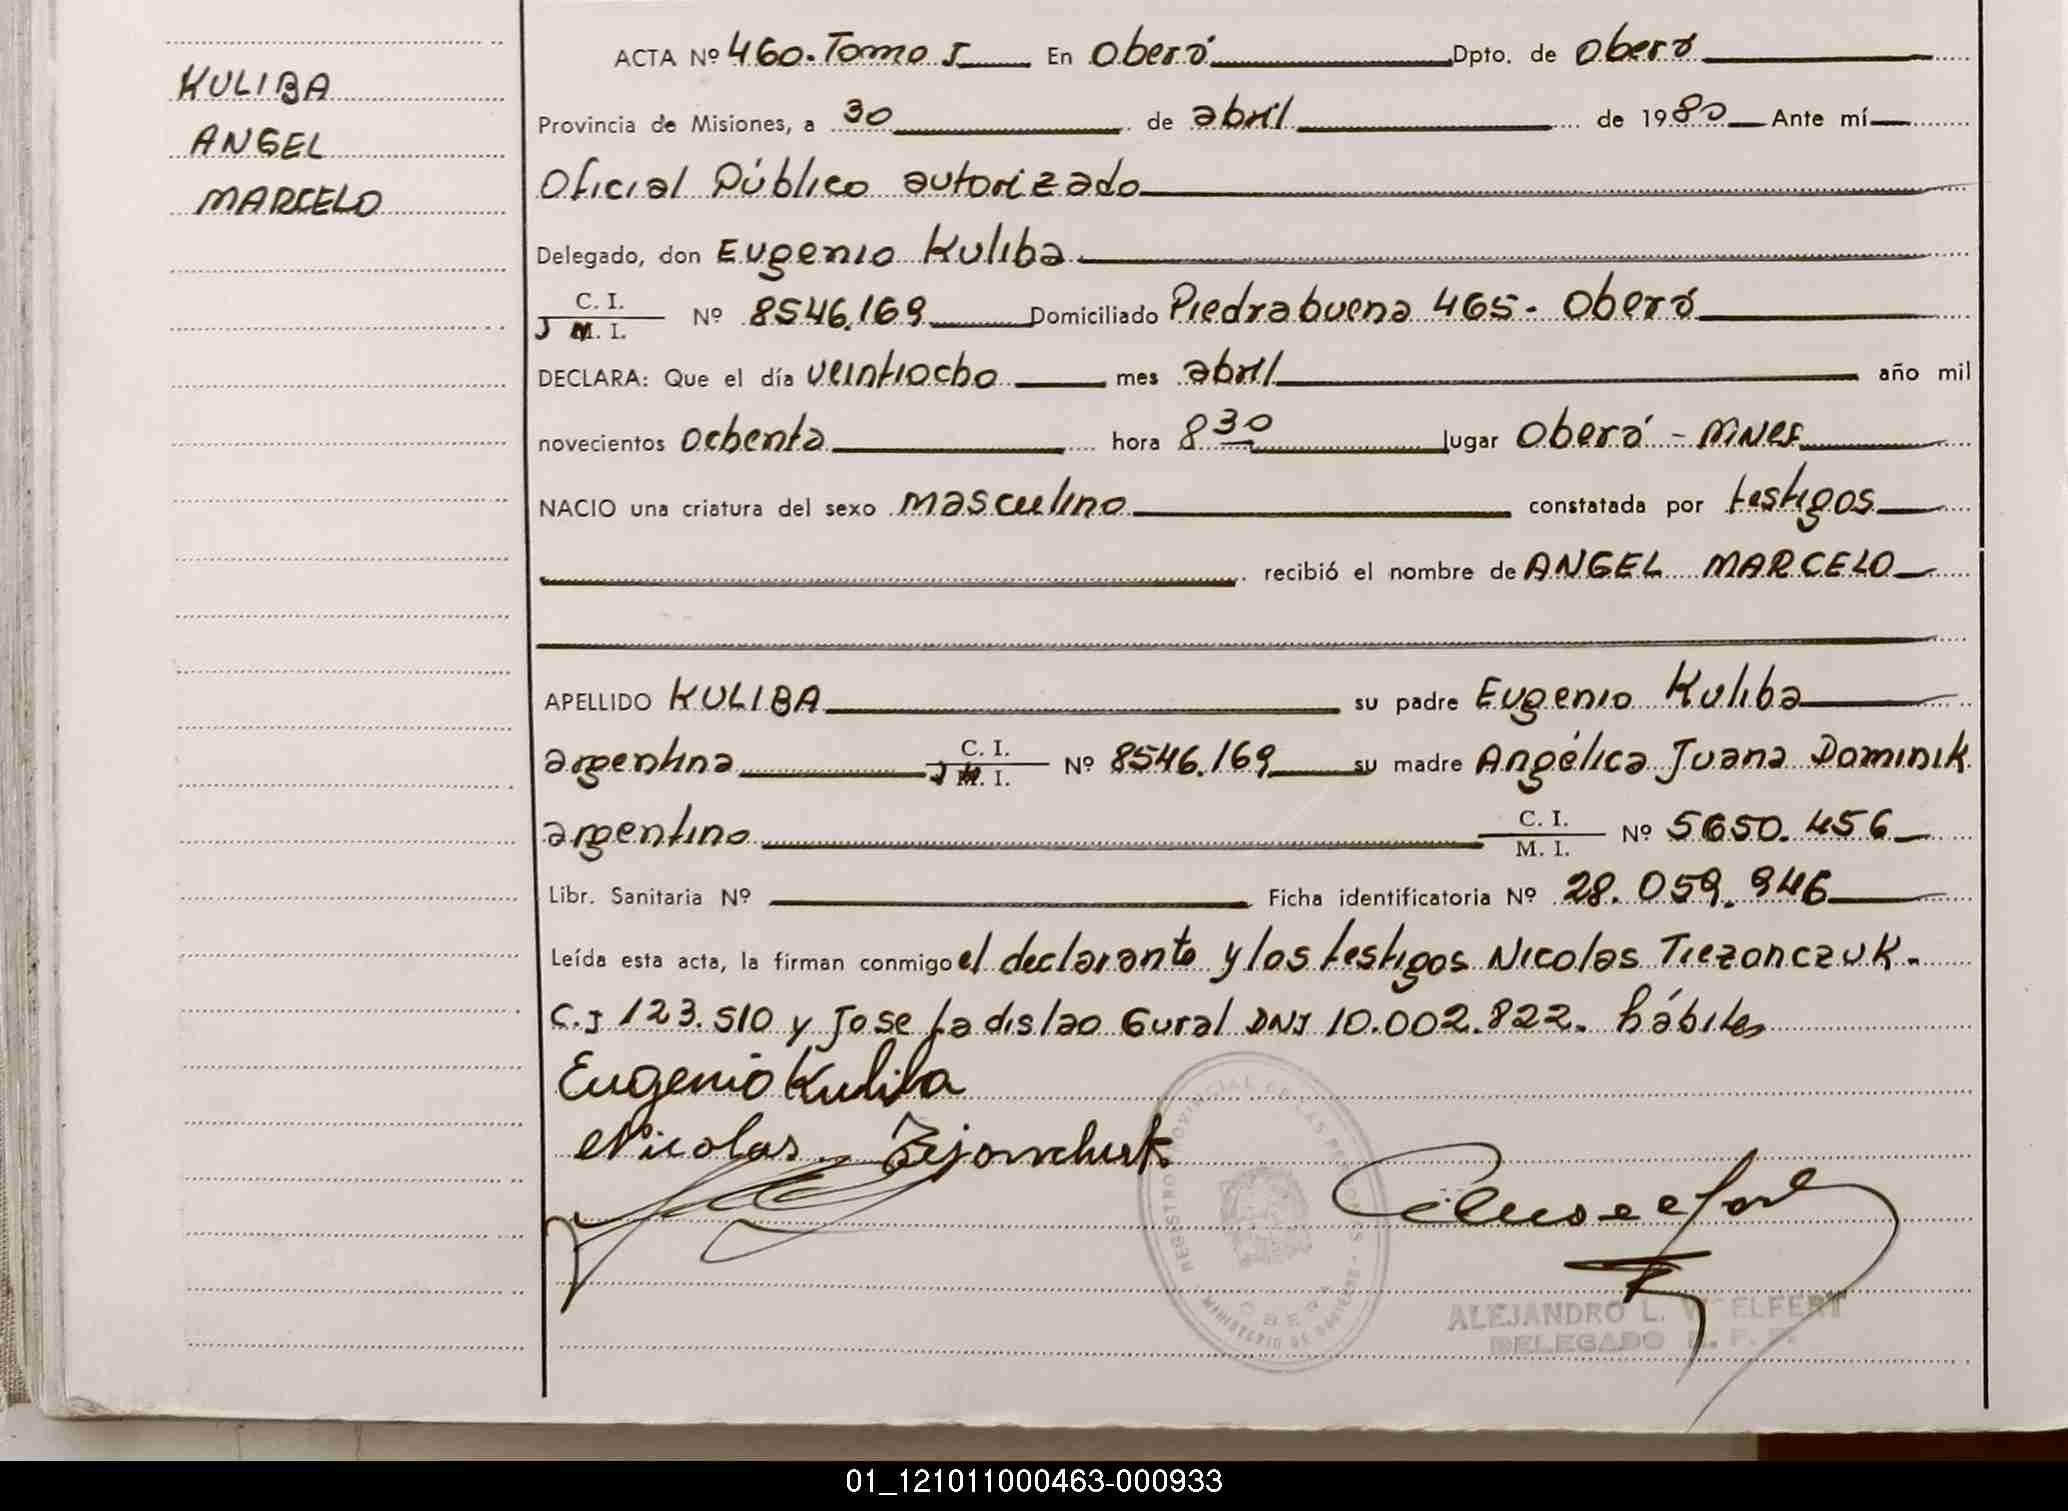 KULIBA
ANGEL
MARCELO
ACTA Nº 460. Tomo I En Oberá Dpto. de Oberá
Provincia de Misiones, a 30 de abril de 1980 Ante mí
Oficial Público autorizado
Delegado, don Eugenio Kuliba
C. I.
M. I. Nº 8546.169 Domiciliado Piedrabuena 465 - Oberá
DECLARA: Que el día veintiocho mes abril año mil
novecientos ochenta hora 8 30 lugar Oberá - Mnes
NACIO una criatura del sexo masculino constatada por testigos
recibió el nombre de ANGEL MARCELO
APELLIDO KULIBA su padre Eugenio Kuliba
argentina C. I. M. I. Nº 8546.169 su madre Angélica Juana Dominik
argentino C. I. M. I. Nº 5650.456
Libr. Sanitaria Nº Ficha identificatoria Nº 28.059.946
Leída esta acta, la firman conmigo el declarante y los testigos Nicolas Tiezonczuk.
C.I 123.510 y Jose Ladislao Gural DNI 10.002.822. hábiles
Eugenio Kuliba
Nicolas
REGISTRO PROVINCIAL DE LAS PERSONAS
MINISTERIO DE GOBIERNO
OBERA
ALEJANDRO L. WOELFERT
DELEGADO R. P. P.
01_121011000463-000933